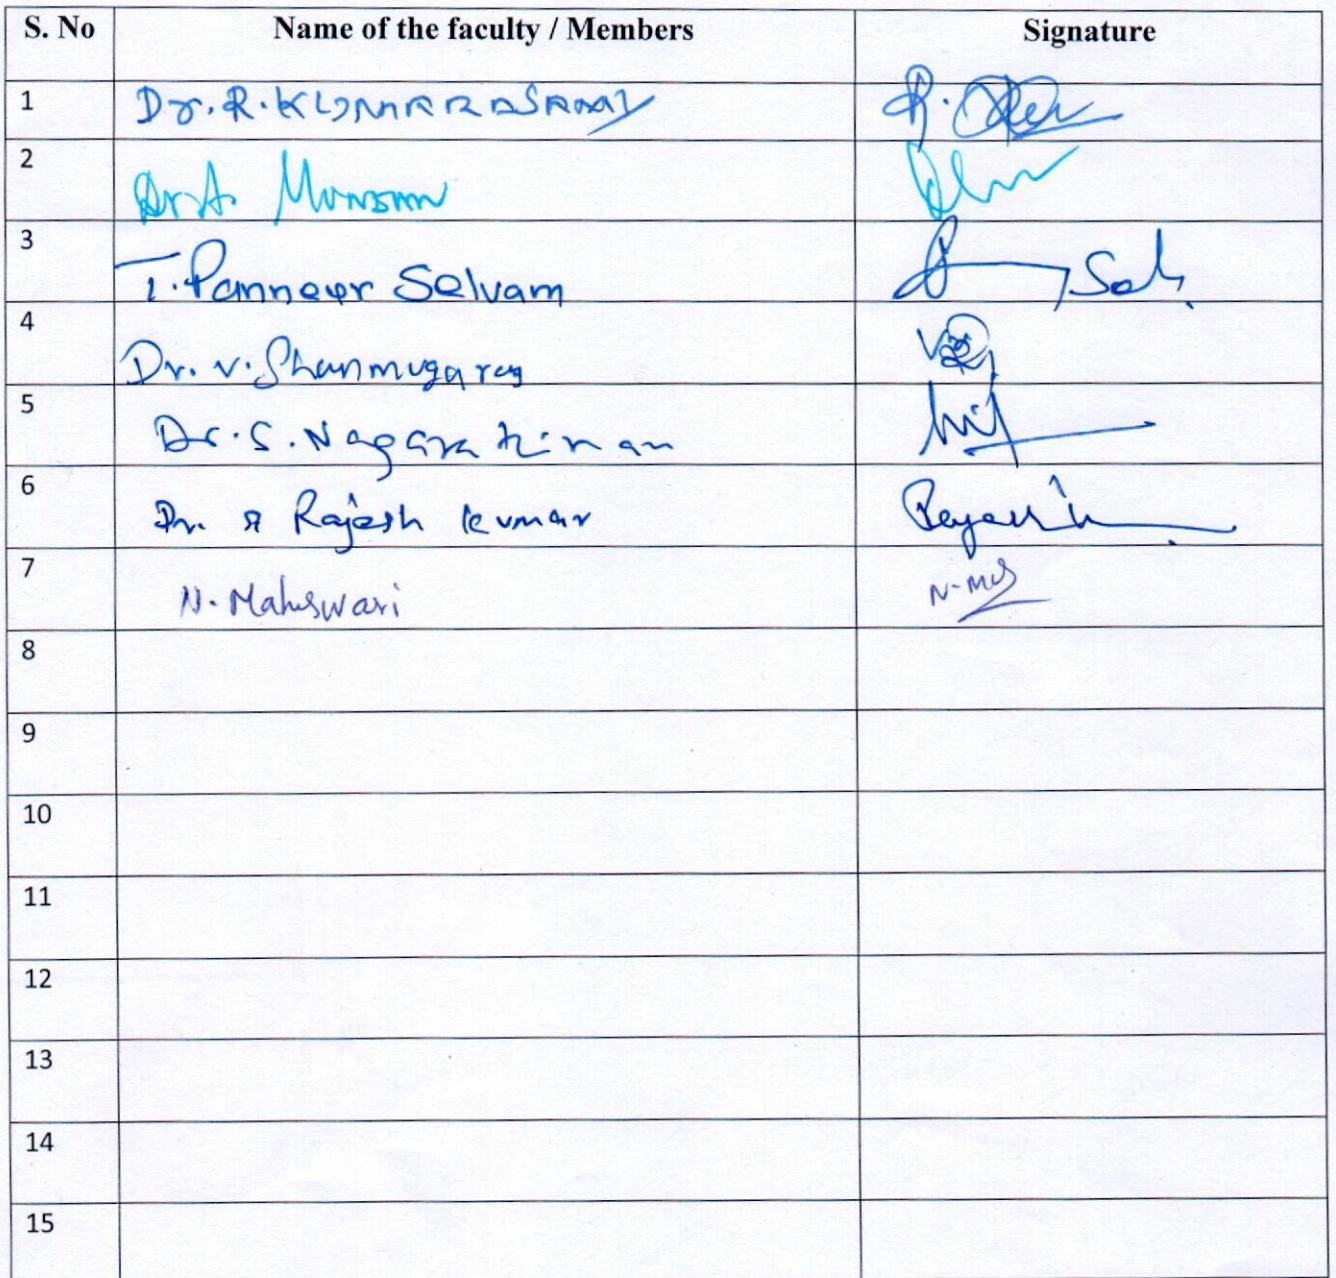 S. No Name of the faculty / Members Signature
1 Dr. R. KUMARRASAMY R.
2 Dr. A.
3 T. Panneer Selvam
4 Dr. V. Shanmugaraj
5 Dr. S. Nagarathinam
6 Dr. Rajesh Kumar
7 N. Maheswari
8
9
10
11
12
13
14
15